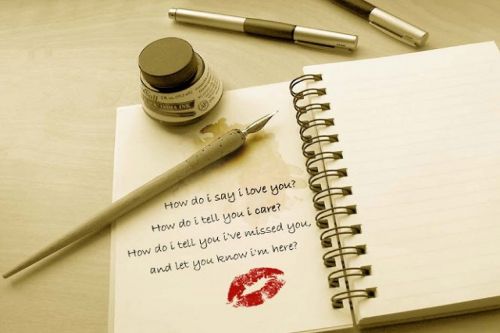 INDIA INK
How do i say i love you?
How do i tell you i care?
How do i tell you i've missed you,
and let you know i'm here?